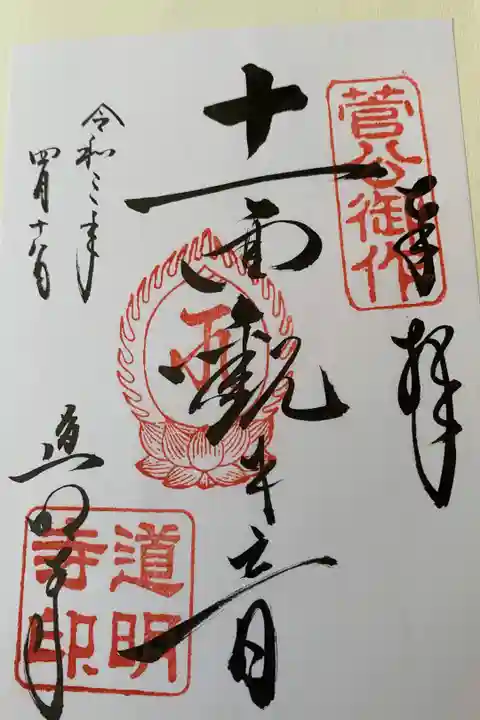 菅公御作
奉拝
十一面観世音
道明寺
道明寺印
令和三年
四月十八日